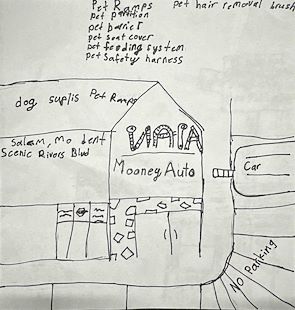 Pet Ramps    pet hair removal brush
pet partition
pet barrier
pet seat cover
pet feeding system
pet safety harness
dog suplis Pet Ramps
Salem, Mo dent
Scenic Rivers Blvd
NAPA
Mooney Auto
Car
No Parking